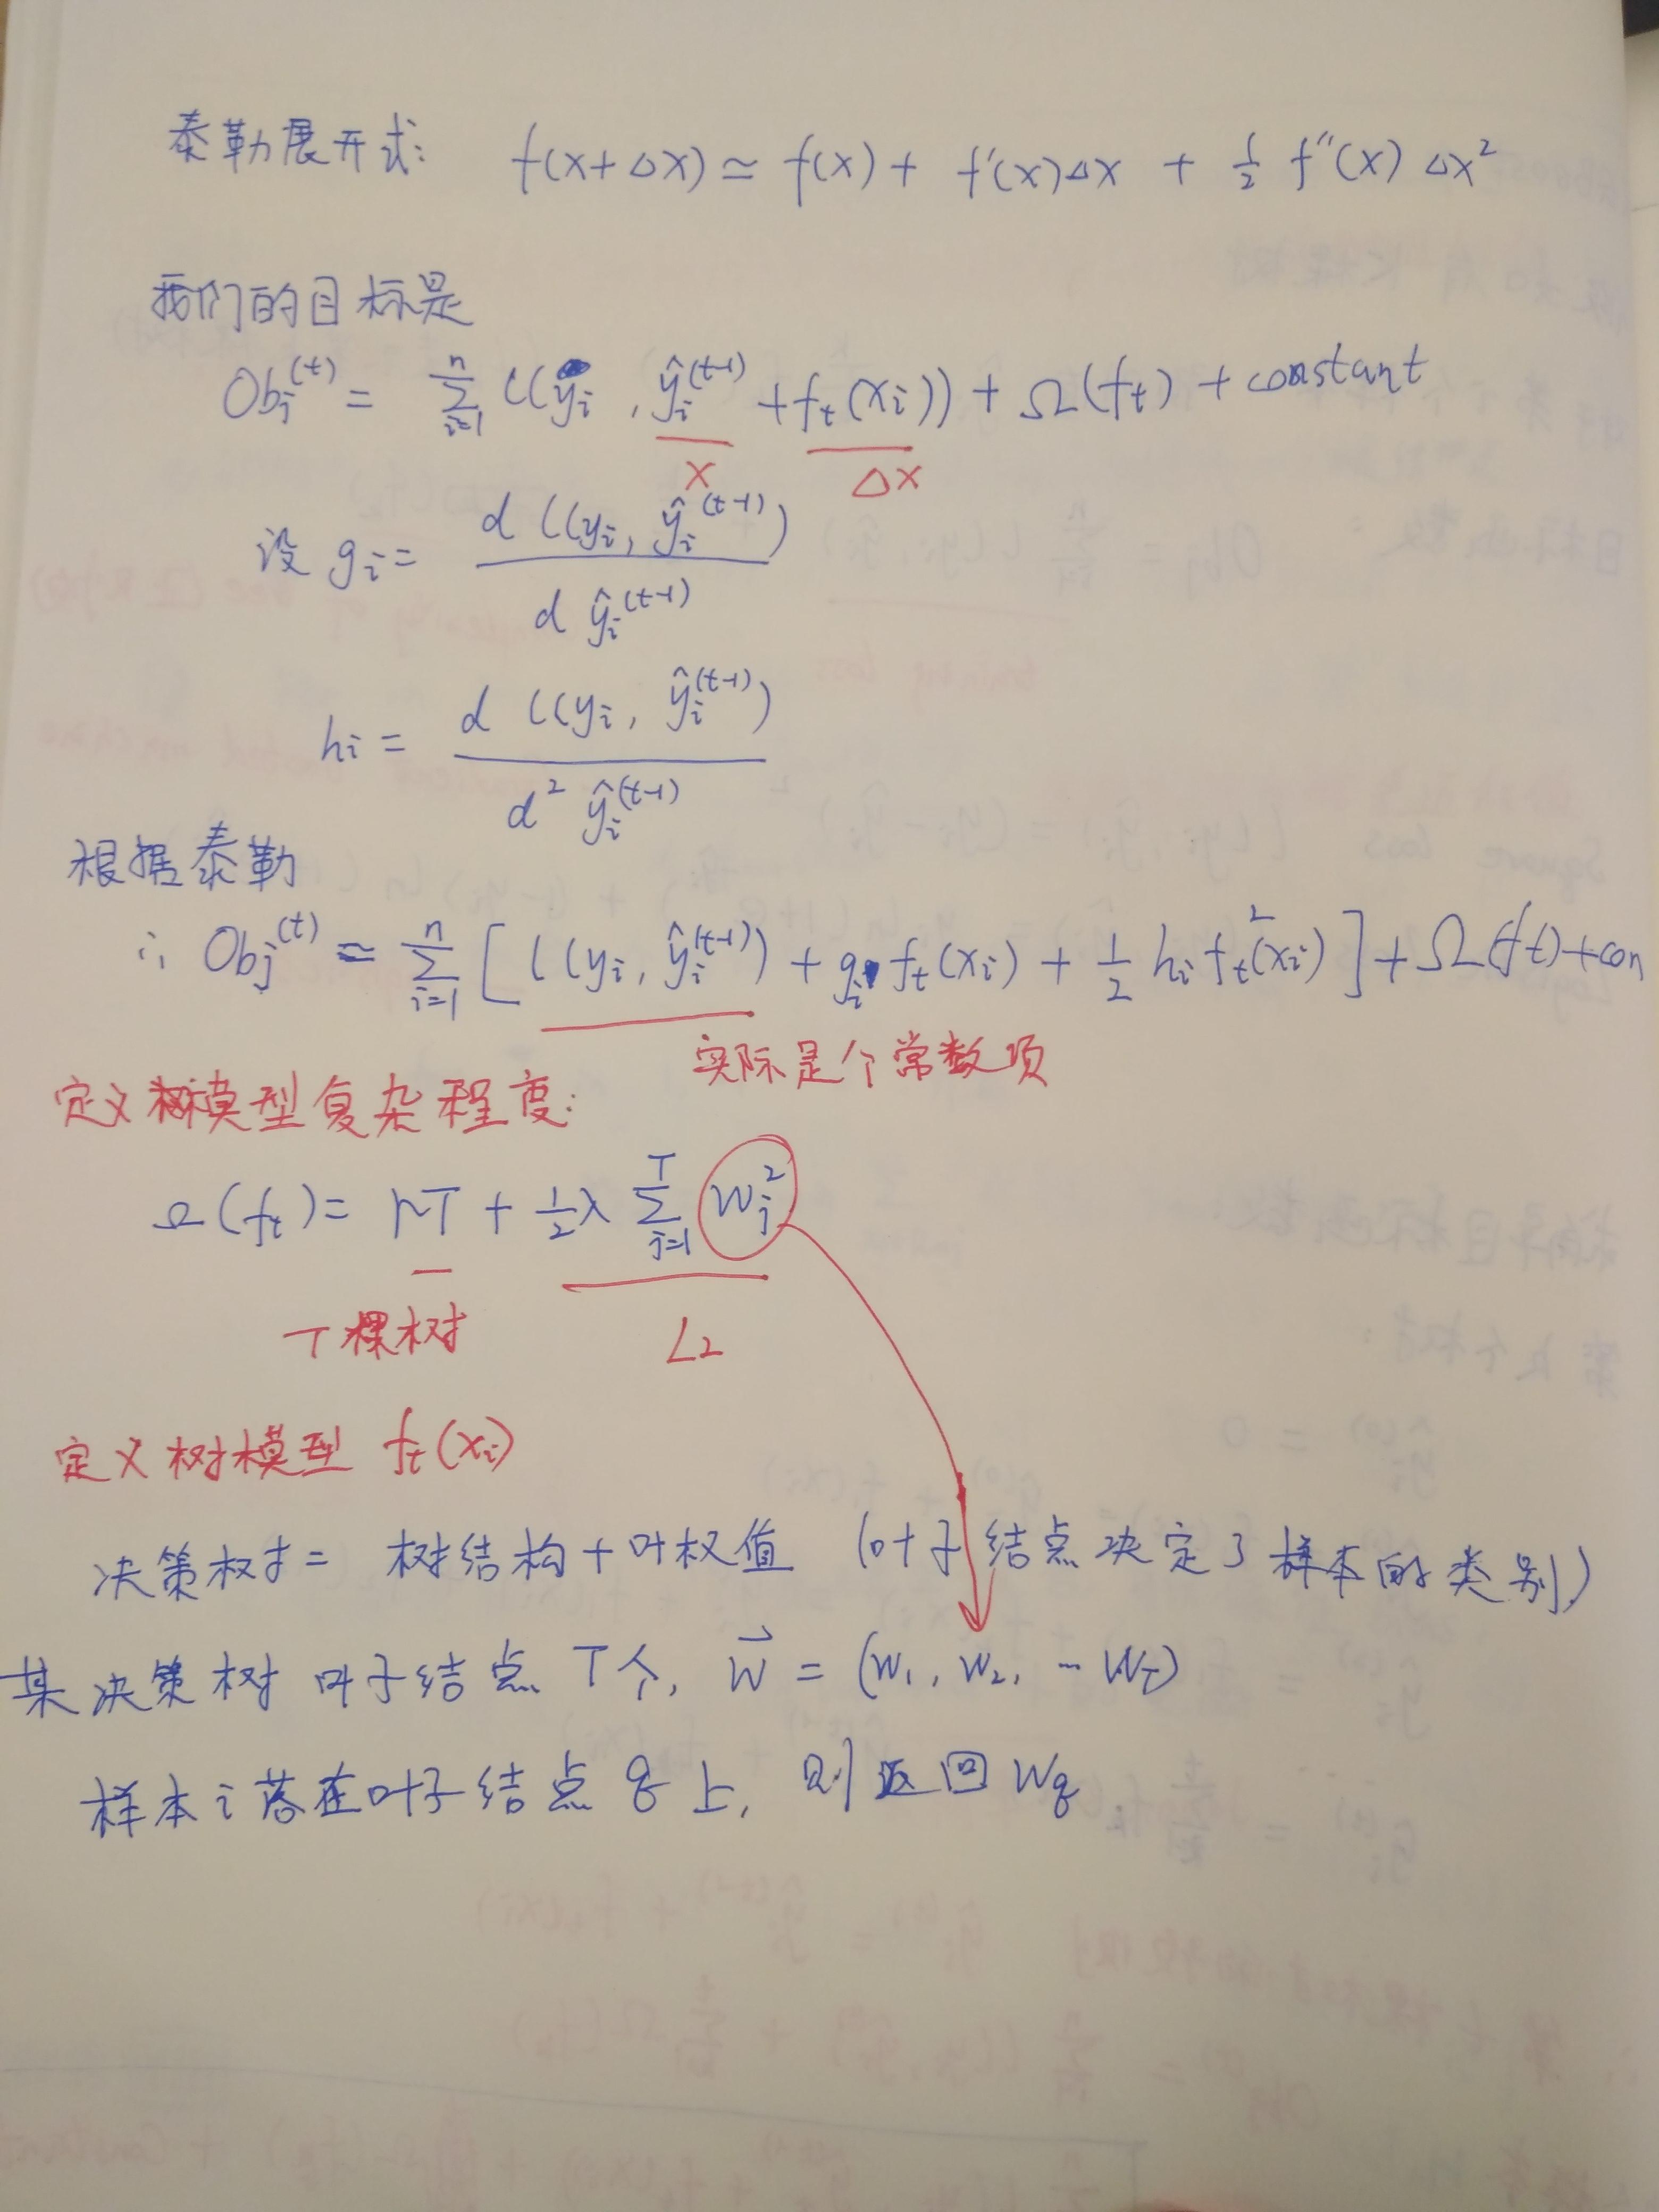 泰勒展开式: f(x+Δx) ≃ f(x) + f'(x)Δx + ½ f''(x) Δx²
我们的目标是
Obj^(t) = Σ_{i=1}^{n} l(y_i, ŷ_i^(t-1) + f_t(x_i)) + Ω(f_t) + constant
x Δx
设 g_i = d l(y_i, ŷ_i^(t-1)) / d ŷ_i^(t-1)
h_i = d l(y_i, ŷ_i^(t-1)) / d² ŷ_i^(t-1)
根据泰勒
∴ Obj^(t) ≃ Σ_{i=1}^{n} [l(y_i, ŷ_i^(t-1)) + g_i f_t(x_i) + ½ h_i f_t²(x_i)] + Ω(f_t) + con
实际是个常数项
定义树模型复杂程度:
Ω(f_t) = γT + ½λ Σ_{j=1}^{T} w_j²
T棵树 L2
定义树模型 f_t(x_i)
决策树 = 树结构 + 叶权值 (叶子结点决定了样本的类别)
某决策树 叶子结点 T个, w⃗ = (w₁, w₂, … w_T)
样本 i 落在叶子结点 q 上, 则返回 w_q